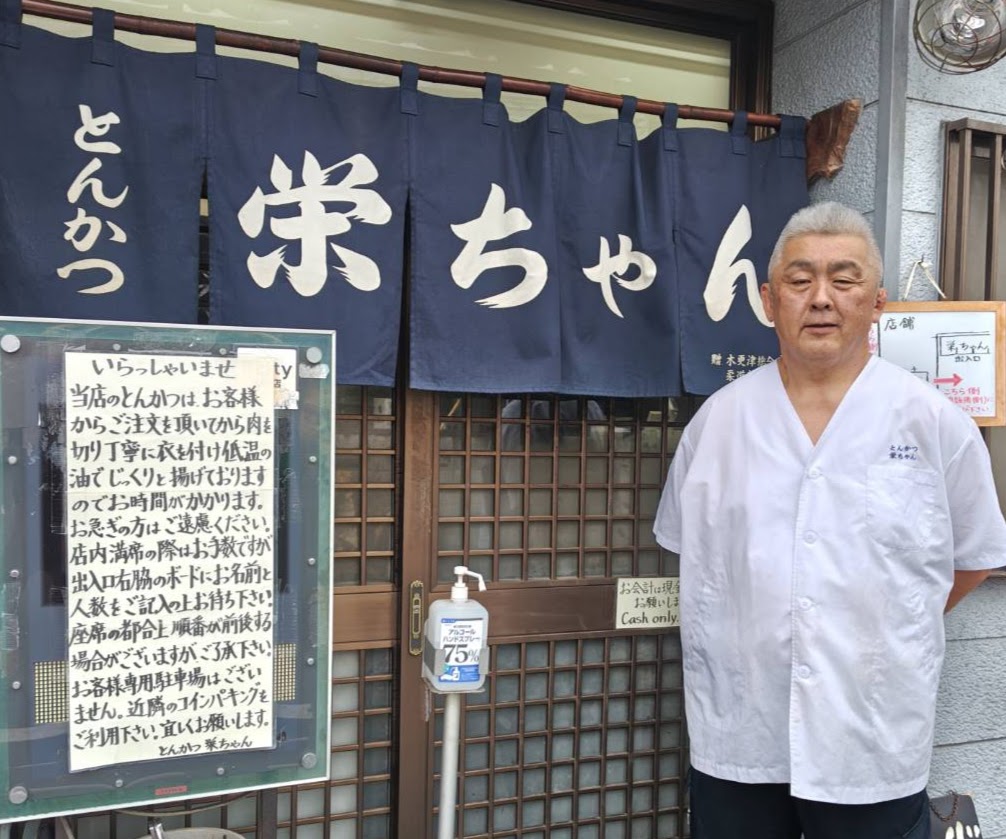 とんかつ
栄ちゃん
贈 木更津
いらっしゃいませ
当店のとんかつは、お客様
からご注文を頂いてから肉を
切り丁寧に衣を付け低温の
油でじっくりと揚げております
のでお時間がかかります。
お急ぎの方はご遠慮ください。
店内満席の際はお手数ですが
出入口右脇のボードにお名前と
人数をご記入の上お待ち下さい
座席の都合上順番が前後する
場合がございますがご了承下さい
お客様専用駐車場はござい
ません。近隣のコインパーキングを
ご利用下さい。宜しくお願いします。
とんかつ 栄ちゃん
ty
店
アルコール
ハンドスプレー
75%
お会計は現金
お願いしま
Cash only.
とんかつ
栄ちゃん
店舗
栄ちゃん
出入口
こちら側